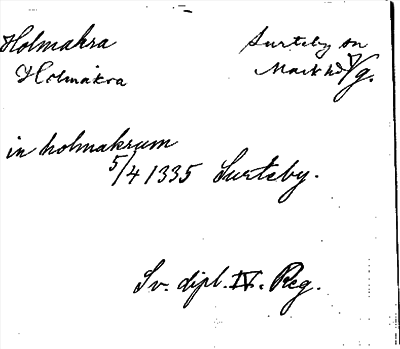 Holmakra
Holmakra
Surteby sn
Mark hd Vg.
in holmakrum
5/4 1335 Surteby.
Sv. dipl. IV. Reg.